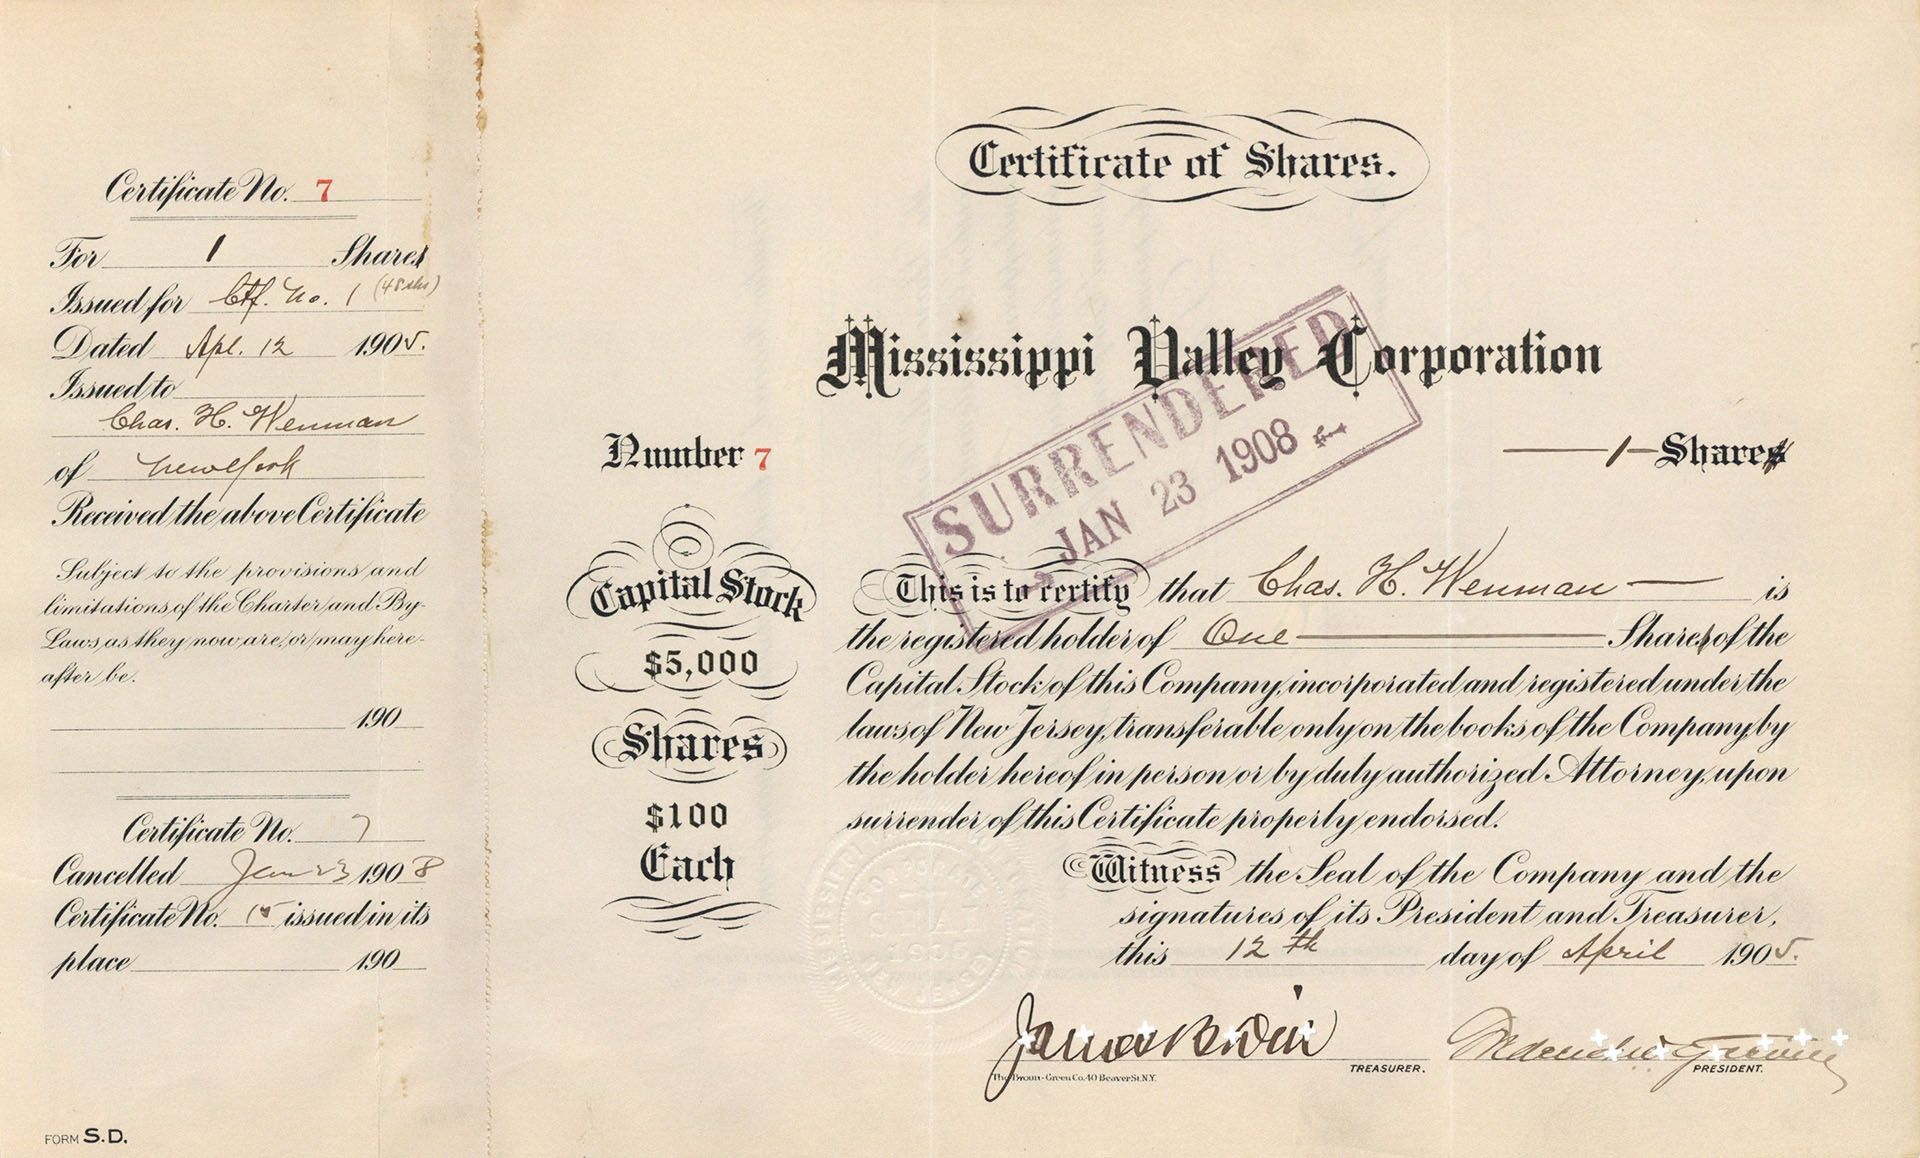 Certificate No. 7
For 1 Shares
Issued for Ctf. No. 1 (48 shs)
Dated Apl. 12 1905.
Issued to
Chas. H. Wenman
of New York
Received the above Certificate
Subject to the provisions and
limitations of the Charter and By-
Laws, as they now are, or may here-
after be.
190
Certificate No. 7
Cancelled Jan 23 1908
Certificate No. 15 issued in its
place 190
FORM S.D.
Certificate of Shares.
Mississippi Valley Corporation
SURRENDERED
JAN 23 1908
Number 7
1 Shares
Capital Stock
$5,000
Shares
$100
Each
This is to certify that Chas. H. Wenman is
the registered holder of One Shares of the
Capital Stock of this Company, incorporated and registered under the
laws of New Jersey, transferable only on the books of the Company, by
the holder hereof in person or by duly authorized Attorney, upon
surrender of this Certificate properly endorsed.
Witness the Seal of the Company and the
signatures of its President and Treasurer,
this 12th day of April 1905.
TREASURER.
PRESIDENT.
The Broun-Green Co. 40 Beaver St. N.Y.